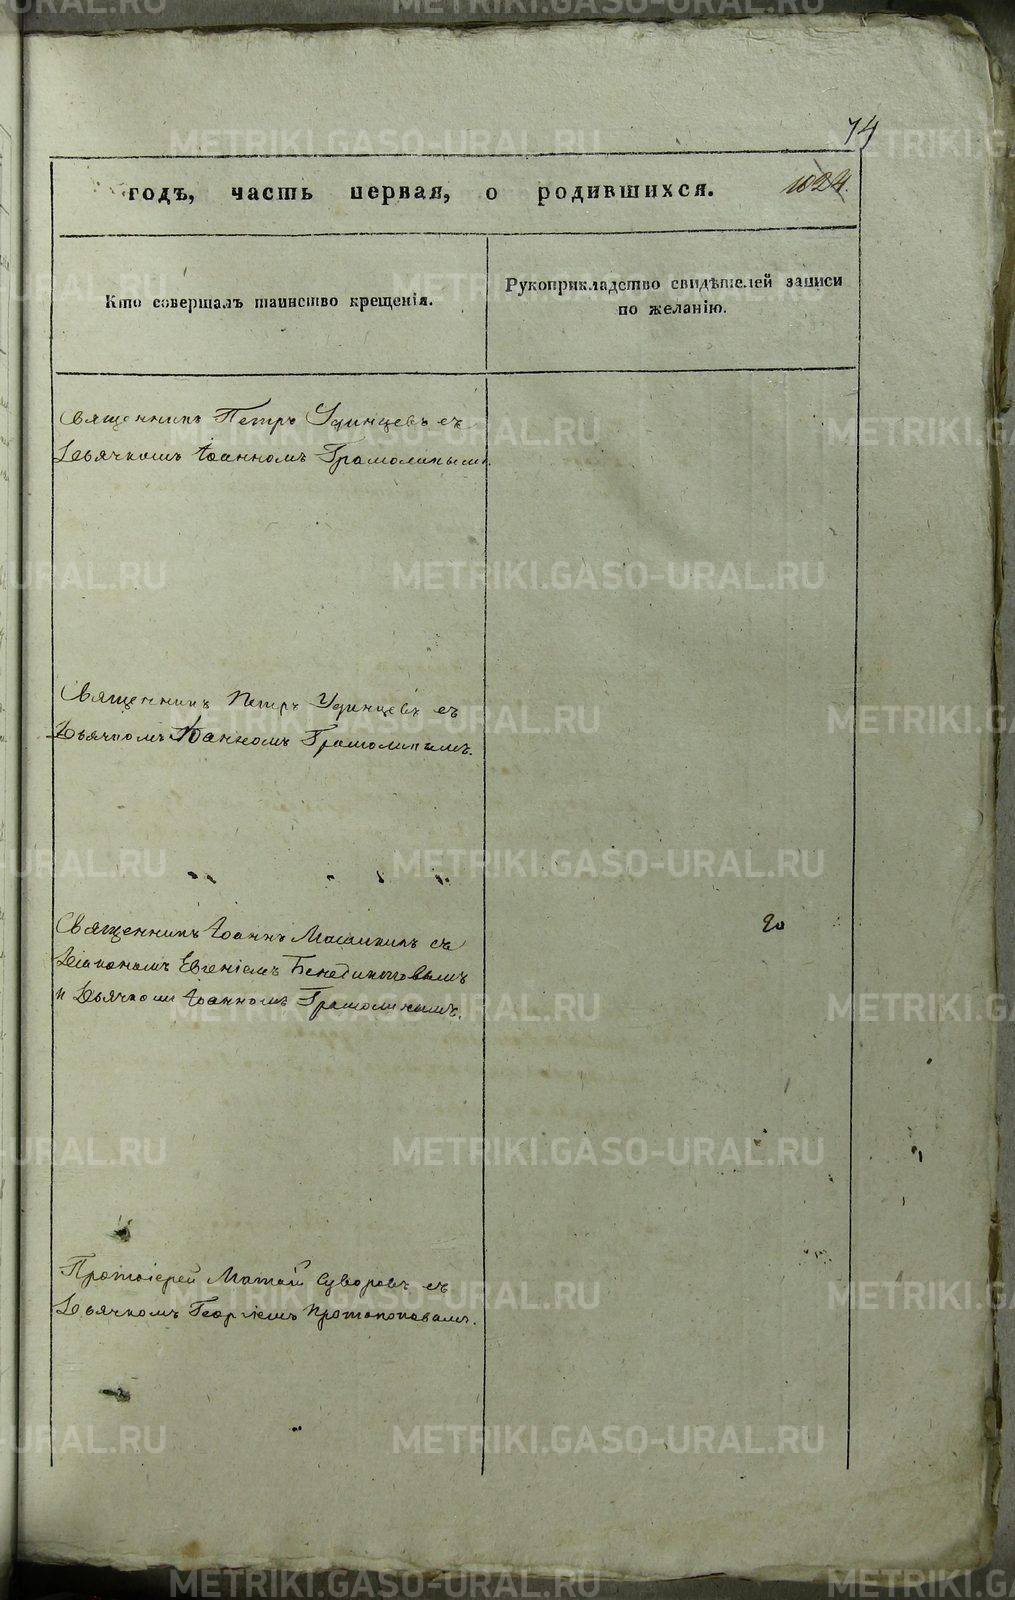 74
годъ, часть первая, о родившихся. 1024.
Кто совершалъ таинство крещенія.
Рукоприкладство свидѣтелей записи
по желанію.
Священникъ Петръ Удинцевъ съ
Дьячкомъ Іоанномъ Грамолинымъ.
Священникъ Петръ Удинцевъ съ
Дьячкомъ Іоанномъ Грамолинымъ.
Священникъ Іоаннъ съ
Діакономъ Евгеніемъ Бенедиктовымъ
и Дьячкомъ Іоанномъ Грамолинымъ.
Протоіерей Матѳій Суворовъ съ
Дьячкомъ Георгіемъ Протопоповымъ.
METRIKI.GASO-URAL.RU